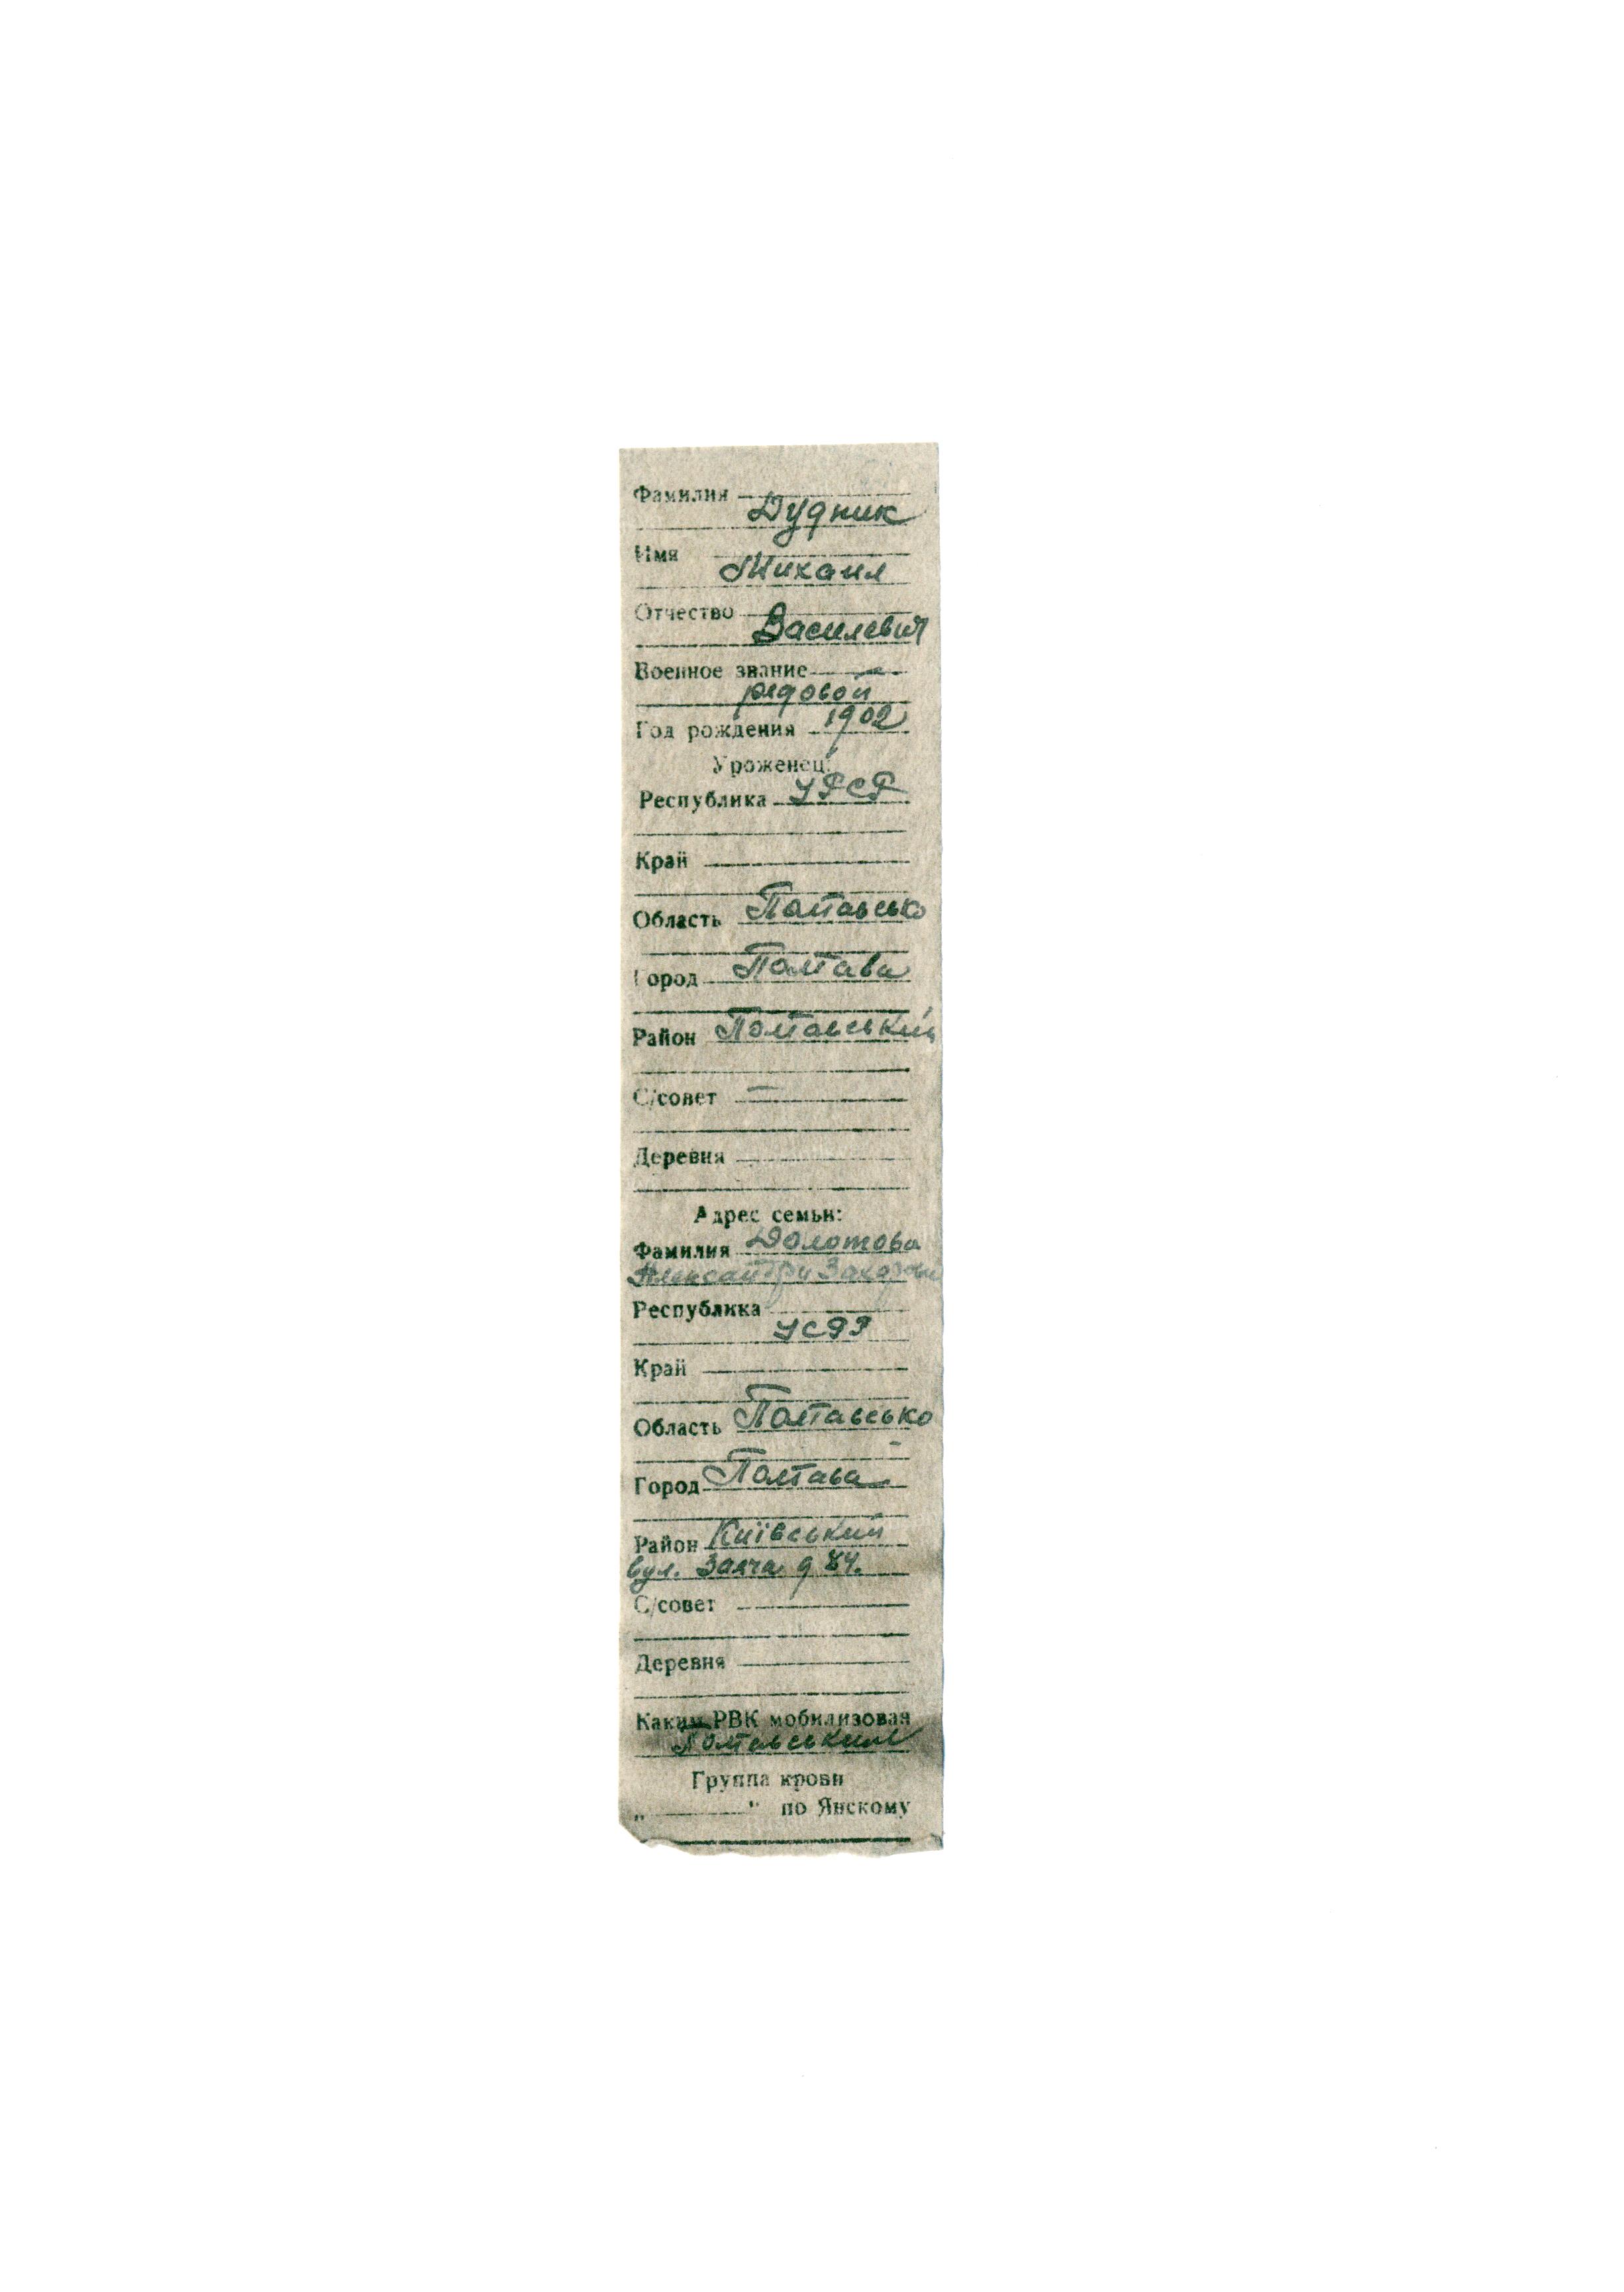 Фамилия
Дудник
Имя
Михаил
Отчество
Василевич
Военное звание
рядовой
Год рождения 1902
Уроженец:
Республика УРСР
Край
Область Полтавсько
Город Полтава
Район Полтавський
С/совет
Деревня
Адрес семьи:
Фамилия Долотова
Республика
УСРР
Край
Область Полтавсько
Город Полтава
Район Київський
вул. д 84.
С/совет
Деревня
Каким РВК мобилизован
Полтавським
Группа крови
„ " по Янскому